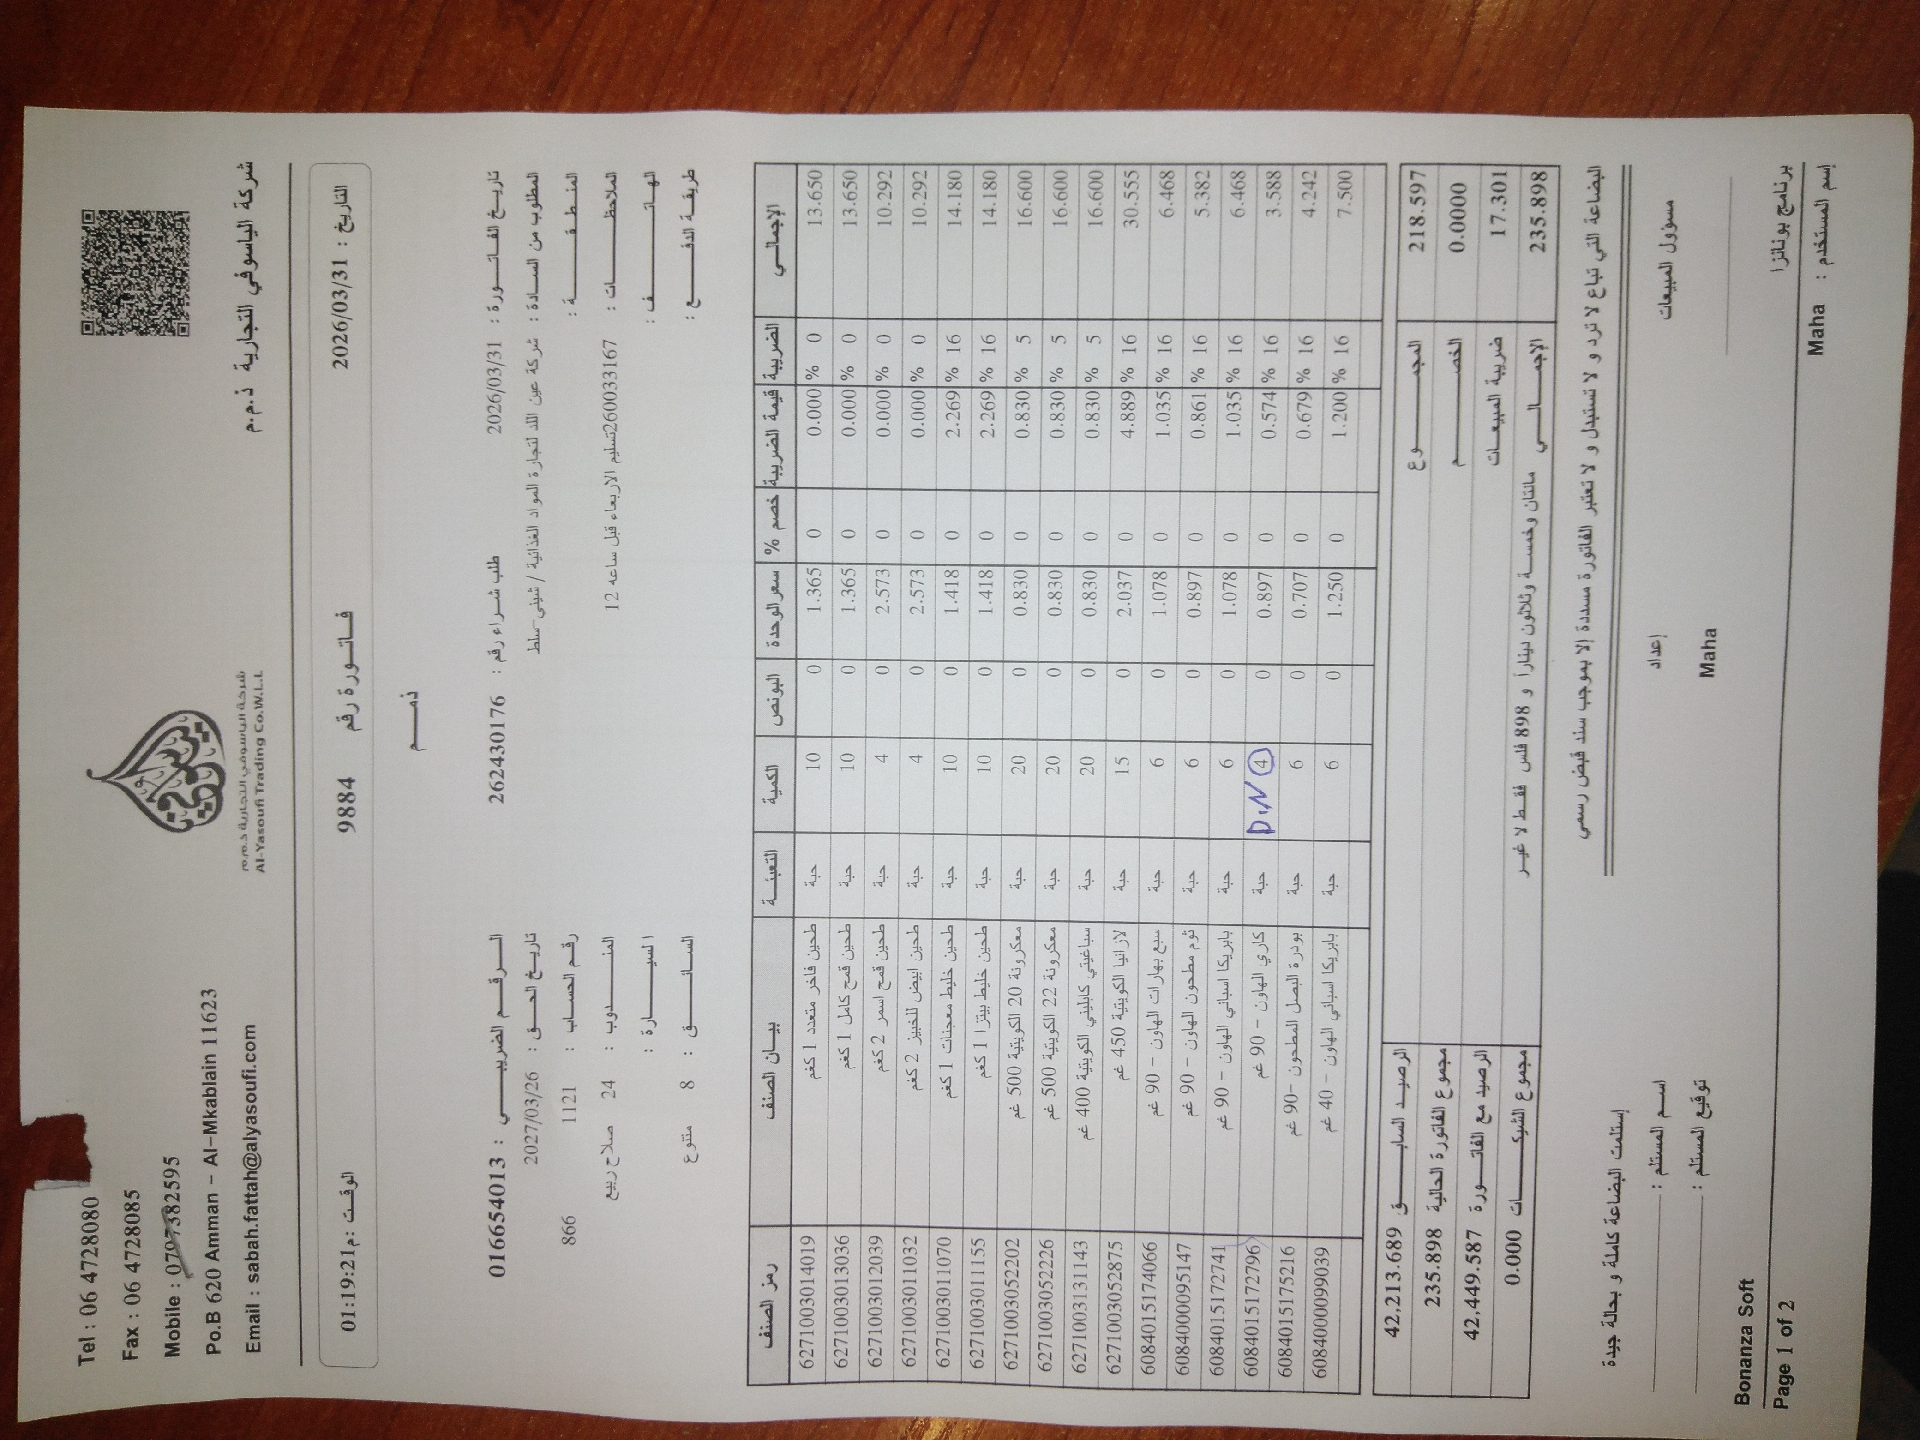 Tel : 06 4728080
Fax : 06 4728085
Mobile : 0797382595
Po.B 620 Amman - Al-Mkablain 11623
Email : sabah.fattah@alyasoufi.com
شركة الياسوفي التجارية ذ.م.م
Al-Yasoufi Trading Co.W.L.L
شركة الياسوفي التجارية ذ.م.م
التاريخ : 2026/03/31 فاتورة رقم 9884 الوقت :01:19:21م
ذمم
تاريخ الفاتورة : 2026/03/31 طلب شراء رقم : 262430176 الرقم الضريبي : 016654013
المطلوب من السادة : شركة عين اللد لتجارة المواد الغذائية / شيني-سلط تاريخ الحق : 2027/03/26
المنطقة : رقم الحساب : 1121 866
الملاحظات : 260033167تسليم الاربعاء قبل ساعه 12 المندوب : 24 صلاح ربيع
الهاتف : السيارة :
طريقة الدفع : السائق : 8 متنوع
رمز الصنف بيان الصنف التعبئة الكمية البونص سعر الوحدة خصم % قيمة الضريبة الضريبة الإجمالي
6271003014019 طحين فاخر متعدد 1 كغم حبة 10 0 1.365 0 0.000 % 0 13.650
6271003013036 طحين قمح كامل 1 كغم حبة 10 0 1.365 0 0.000 % 0 13.650
6271003012039 طحين قمح اسمر 2 كغم حبة 4 0 2.573 0 0.000 % 0 10.292
6271003011032 طحين ابيض للخبيز 2 كغم حبة 4 0 2.573 0 0.000 % 0 10.292
6271003011070 طحين خليط معجنات 1 كغم حبة 10 0 1.418 0 2.269 % 16 14.180
6271003011155 طحين خليط بيتزا 1 كغم حبة 10 0 1.418 0 2.269 % 16 14.180
6271003052202 معكرونة 20 الكويتية 500 غم حبة 20 0 0.830 0 0.830 % 5 16.600
6271003052226 معكرونة 22 الكويتية 500 غم حبة 20 0 0.830 0 0.830 % 5 16.600
6271003131143 سباغيتي كابليني الكويتية 400 غم حبة 20 0 0.830 0 0.830 % 5 16.600
6271003052875 لازانيا الكويتية 450 غم حبة 15 0 2.037 0 4.889 % 16 30.555
6084015174066 سبع بهارات الهاون - 90 غم حبة 6 0 1.078 0 1.035 % 16 6.468
6084000095147 ثوم مطحون الهاون - 90 غم حبة 6 0 0.897 0 0.861 % 16 5.382
6084015172741 بابريكا اسباني الهاون - 90 غم حبة 6 0 1.078 0 1.035 % 16 6.468
6084015172796 كاري الهاون - 90 غم حبة D.N 4 0 0.897 0 0.574 % 16 3.588
6084015175216 بودرة البصل المطحون -90 غم حبة 6 0 0.707 0 0.679 % 16 4.242
6084000099039 بابريكا اسباني الهاون - 40 غم حبة 6 0 1.250 0 1.200 % 16 7.500
المجموع 218.597 الرصيد السابق 42,213.689
الخصم 0.0000 مجموع الفاتورة الحالية 235.898
ضريبة المبيعات 17.301 الرصيد مع الفاتورة 42,449.587
الإجمالي 235.898 مائتان وخمسة وثلاثون ديناراً و 898 فلس فقط لا غير مجموع الشيكات 0.000
البضاعة التي تباع لا ترد و لا تستبدل و لا تعتبر الفاتورة مسددة إلا بموجب سند قبض رسمي
إستلمت البضاعة كاملة و بحالة جيدة
مسؤول المبيعات إعداد اسم المستلم :
Maha توقيع المستلم :
برنامج بونانزا Bonanza Soft
إسم المستخدم : Maha Page 1 of 2